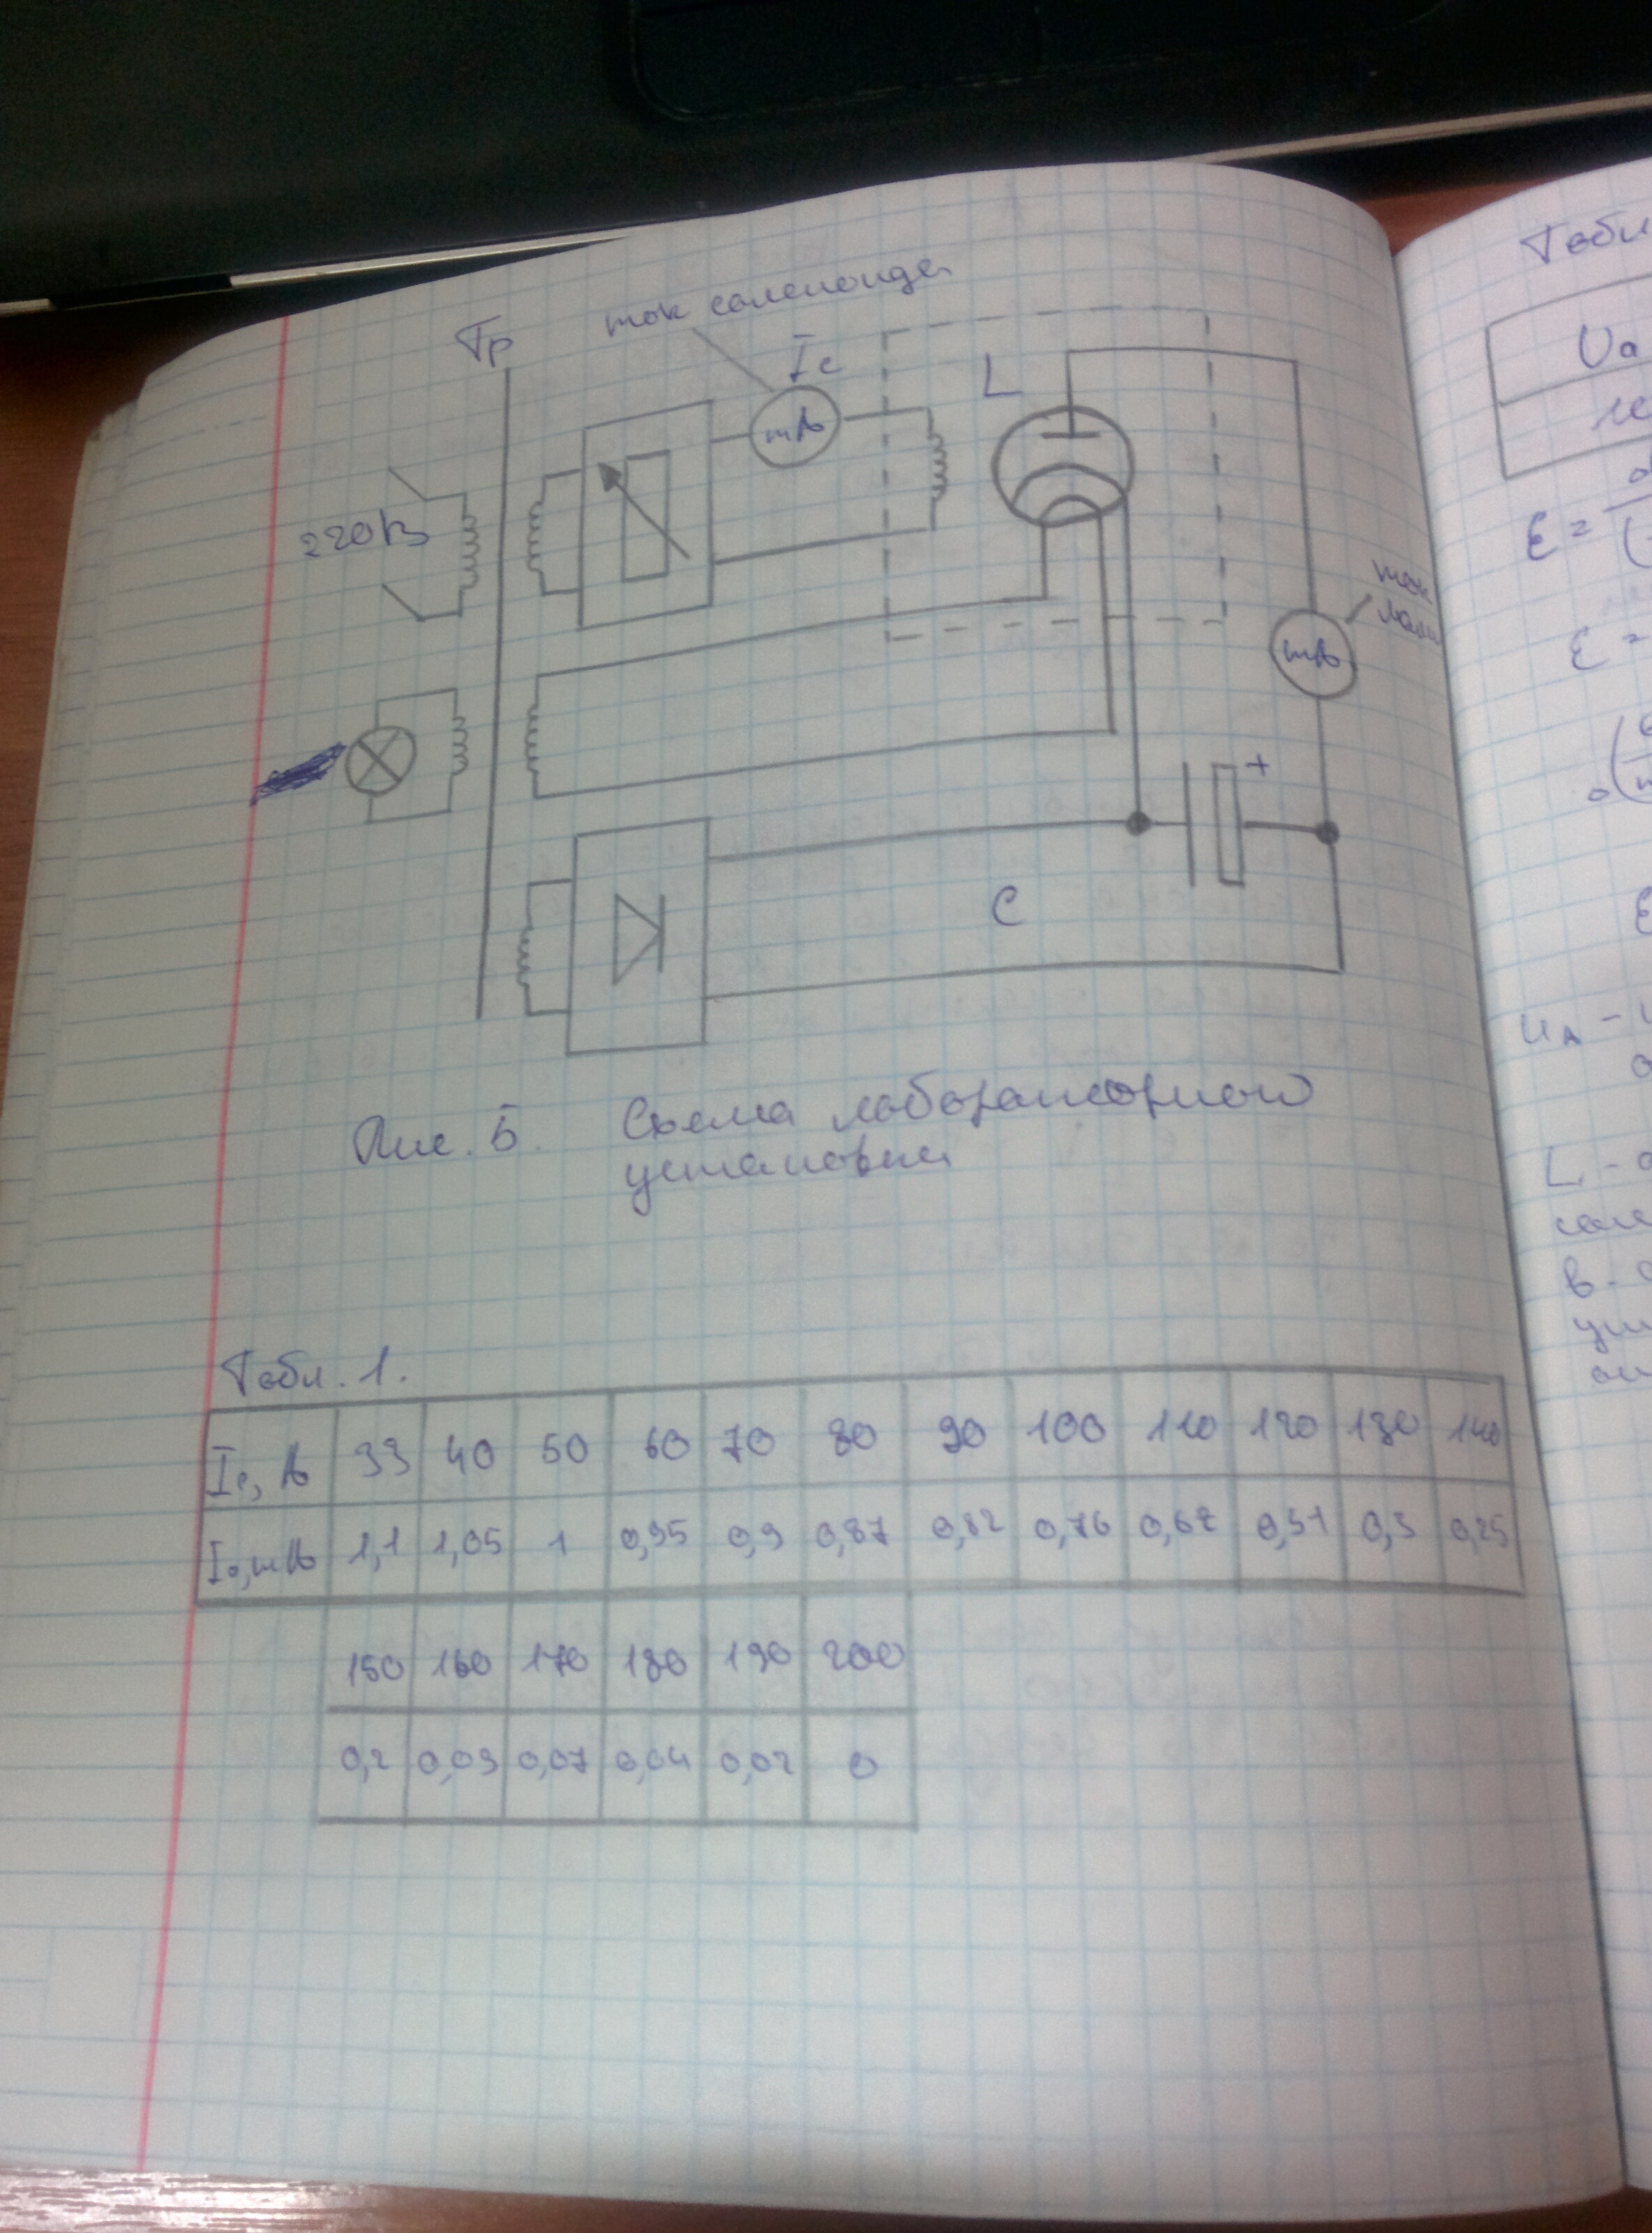 Тр
ток соленоида
Ic
L
mA
220В
ток
mA
+
C
Рис. 5. Схема лабораторной
установки
Табл. 1.
Ic, А 33 40 50 60 70 80 90 100 110 120 130 140
Iа, mA 1,1 1,05 1 0,95 0,9 0,87 0,82 0,76 0,67 0,51 0,3 0,25
150 160 170 180 190 200
0,2 0,09 0,07 0,04 0,02 0
Табл
Uа
ε =
ε =
uА -
L -
в -